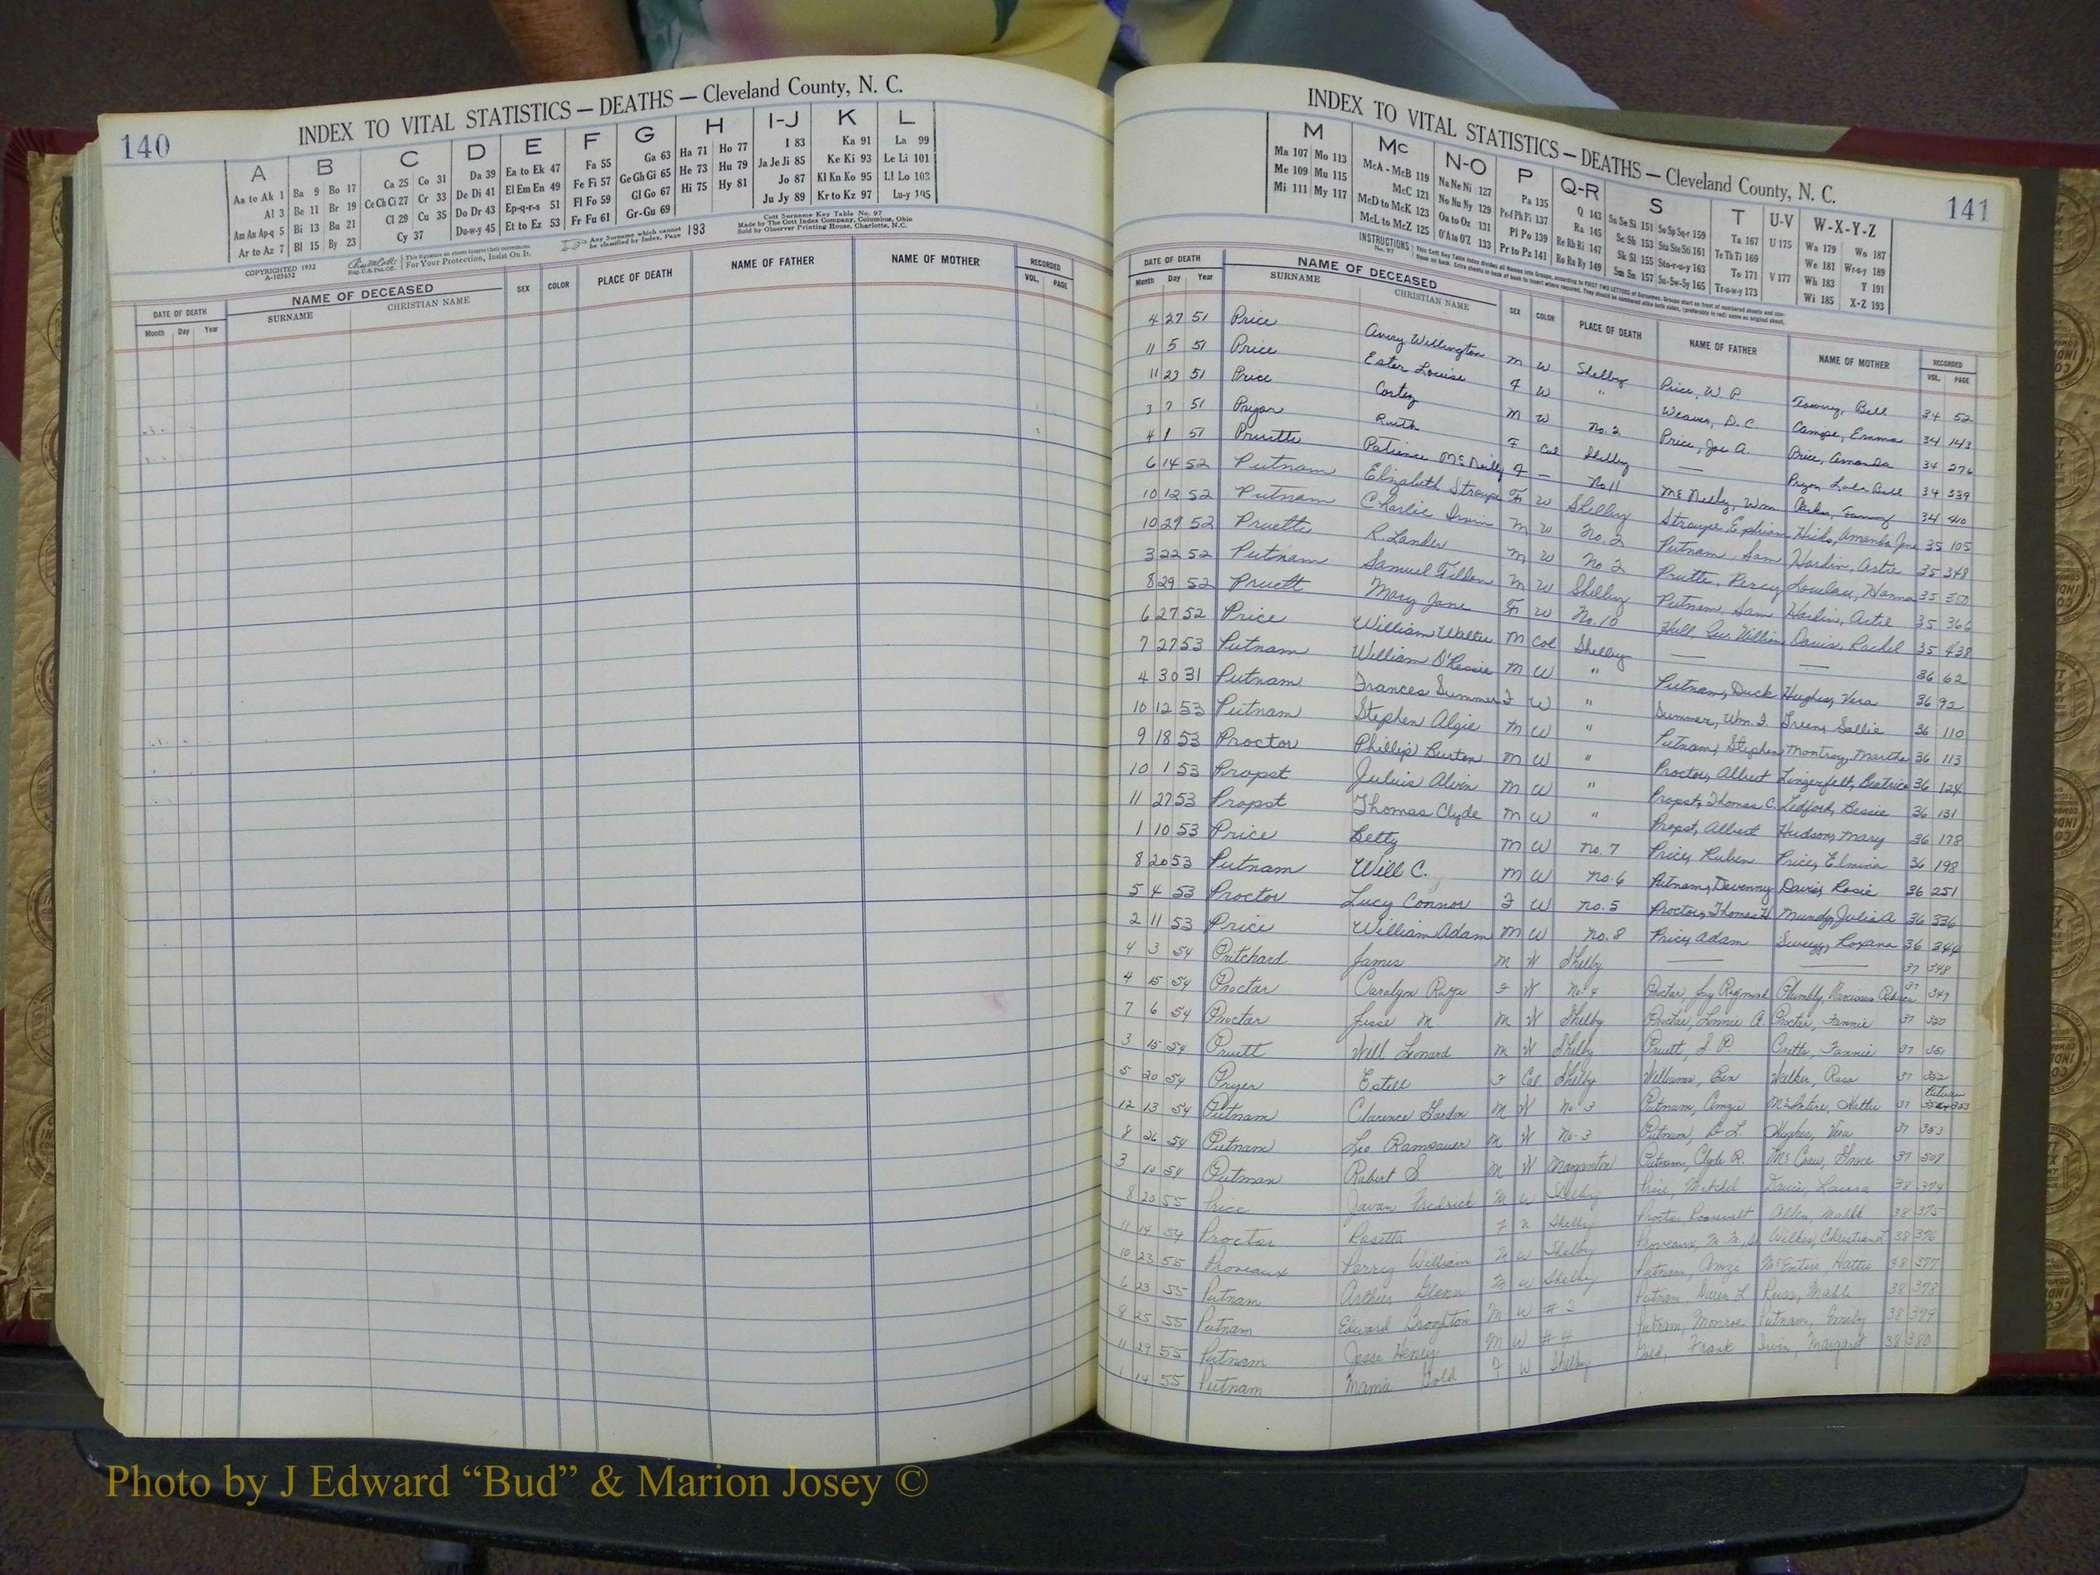 140
INDEX TO VITAL STATISTICS — DEATHS — Cleveland County, N. C.
A B C D E F G H I-J K L
Aa to Ak 1 Ba 9 Bo 17 Ca 25 Co 31 Da 39 Ea to Ek 47 Fa 55 Ga 63 Ha 71 Ho 77 I 83 Ka 91 La 99
Al 3 Be 11 Br 19 Ce Ch Ci 27 Cr 33 De Di 41 El Em En 49 Fe Fi 57 Ge Gh Gi 65 He 73 Hu 79 Ja Je Ji 85 Ke Ki 93 Le Li 101
Am An Ap-q 5 Bi 13 Bu 21 Cl 29 Cu 35 Do Dr 43 Ep-q-r-s 51 Fl Fo 59 Gl Go 67 Hi 75 Hy 81 Jo 87 Kl Kn Ko 95 Ll Lo 103
Ar to Az 7 Bl 15 By 23 Cy 37 Du-w-y 45 Et to Ez 53 Fr Fu 61 Gr-Gu 69 Ju Jy 89 Kr to Kz 97 Lu-y 105
COPYRIGHTED 1932
A-103652
For Your Protection, Insist On It.
Any Surname which cannot be classified by Index, Page 193
Cott Surname Key Table No. 97
Made by The Cott Index Company, Columbus, Ohio
Sold by Observer Printing House, Charlotte, N.C.
DATE OF DEATH NAME OF DECEASED SEX COLOR PLACE OF DEATH NAME OF FATHER NAME OF MOTHER RECORDED
Month Day Year SURNAME CHRISTIAN NAME VOL. PAGE
INDEX TO VITAL STATISTICS — DEATHS — Cleveland County, N. C.
141
M Mc N-O P Q-R S T U-V W-X-Y-Z
Ma 107 Mo 113 McA - McB 119 Na Ne Ni 127 Pa 135 Q 143 Sa Se Si 151 So Sp Sq-r 159 Ta 167 U 175 Wa 179 Wo 187
Me 109 Mu 115 McC 121 No Nu Ny 129 Pe-f Ph Pi 137 Ra 145 Sc Sh 153 Sta Ste Sti 161 Te Th Ti 169 We 181 Wr-u-y 189
Mi 111 My 117 McD to McK 123 Oa to Oz 131 Pl Po 139 Re Rh Ri 147 Sk Sl 155 Sto-r-u-y 163 To 171 V 177 Wh 183 Y 191
McL to McZ 125 O'A to O'Z 133 Pr to Pz 141 Ro Ru Ry 149 Sm Sn 157 Su-Sw-Sy 165 Tr-u-w-y 173 Wi 185 X-Z 193
DATE OF DEATH NAME OF DECEASED SEX COLOR PLACE OF DEATH NAME OF FATHER NAME OF MOTHER RECORDED
Month Day Year SURNAME CHRISTIAN NAME VOL. PAGE
4 27 51 Price Avery Willington M W Shelby Price, W. P. Bell 34 52
11 5 51 Price Ester Louise F W " Weaver, D. C. Campe, Emma 34 143
11 23 51 Price Cortez M W No. 2 Price, Joe A. Price, Amanda 34 276
3 7 51 Pryor Ruth F Col Shelby — Pryor, Lula Bell 34 339
4 1 51 Pruitte Patience McNeilly F — No 11 McNeilly, Wm. 34 410
6 14 52 Putnam Elizabeth Stroupe F W Shelby Stroupe, Ephriam Hicks, Amanda Jane 35 105
10 12 52 Putnam Charlie Irvin M W No. 2 Putnam, Sam Hardin, Artie 35 348
10 29 52 Pruette R. Lander M W No 2 Pruette, Percy Hanna 35 350
3 22 52 Putnam Samuel Tillon M W Shelby Putnam, Sam Hardin, Artie 35 366
8 29 52 Pruett Mary Jane F W No. 10 Hull, William Davis, Rachel 35 438
6 27 52 Price William Walter M Col Shelby — — 36 62
7 27 53 Putnam William O'Kessie M W " Putnam, Duck Hughes, Vera 36 92
4 30 31 Putnam Frances Summer F W " Summer, Wm. F. Green, Sallie 36 110
10 12 53 Putnam Stephen Algie M W " Putnam, Stephen Montroy, Martha 36 113
9 18 53 Proctor Phillip Burton M W " Proctor, Albert Lingerfelt, Beatrice 36 124
10 1 53 Propst Julius Alvin M W " Propst, Thomas C. Ledford, Bessie 36 131
11 27 53 Propst Thomas Clyde M W " Propst, Albert Hudson, Mary 36 178
1 10 53 Price Betty M W No. 7 Price, Ruben Price, Elmina 36 198
8 20 53 Putnam Will C. M W No. 6 Putnam, Devenny Davis, Rosie 36 251
5 4 53 Proctor Lucy Connor F W No. 5 Proctor, Thomas H. Mundy, Julia A 36 336
2 11 53 Price William Adam M W No. 8 Price, Adam Roxana 36 344
4 3 54 Pritchard James M W Shelby — — 37 348
4 15 54 Proctor Carolyn Raye F W No. 4 Proctor, Jay Raymond 37 349
7 6 54 Proctor Jesse M M W Shelby Proctor, Lonnie A. Proctor, Fannie 37 350
3 15 54 Pruett Will Leonard M W Shelby Pruett, S. P. Fannie 37 351
5 20 54 Pryer Estell F Col Shelby Williams, Ben Walker, Rosa 37 352
12 13 54 Putnam Clarence Gordon M W No 3 Putnam, Amzie McIntire, Hattie 37 353
8 26 54 Putnam Leo Ramsauer M W No. 3 Putnam, D. L. Hughes, Vera 37 353
3 10 54 Putman Robert S. M W Morganton Putnam, Clyde R. McCraw, Grace 37 508
8 20 55 Price Javan Fredrick M W Shelby Price, Mitchel Davis, Laura 38 374
11 14 54 Proctor Rosetta F N Shelby Proctor Roosevelt Allen, Mable 38 375
10 23 55 Proveaux Perry William M W Shelby Proveaux, M. M., Sr Wilkes, Christian L 38 376
6 23 55 Putnam Arthur Glenn M W Shelby Putnam, Amzi McEntire, Hattie 38 377
8 25 55 Putnam Edward Broghton M W # 2 Putnam, Green L Ross, Mable 38 378
11 29 55 Putnam Jesse Henry M W # 4 Putnam, Monroe Putnam, Emily 38 379
1 14 55 Putnam Mamie Gold F W Shelby Gold, Frank Irvin, Margaret 38 380
Photo by J Edward “Bud” & Marion Josey ©